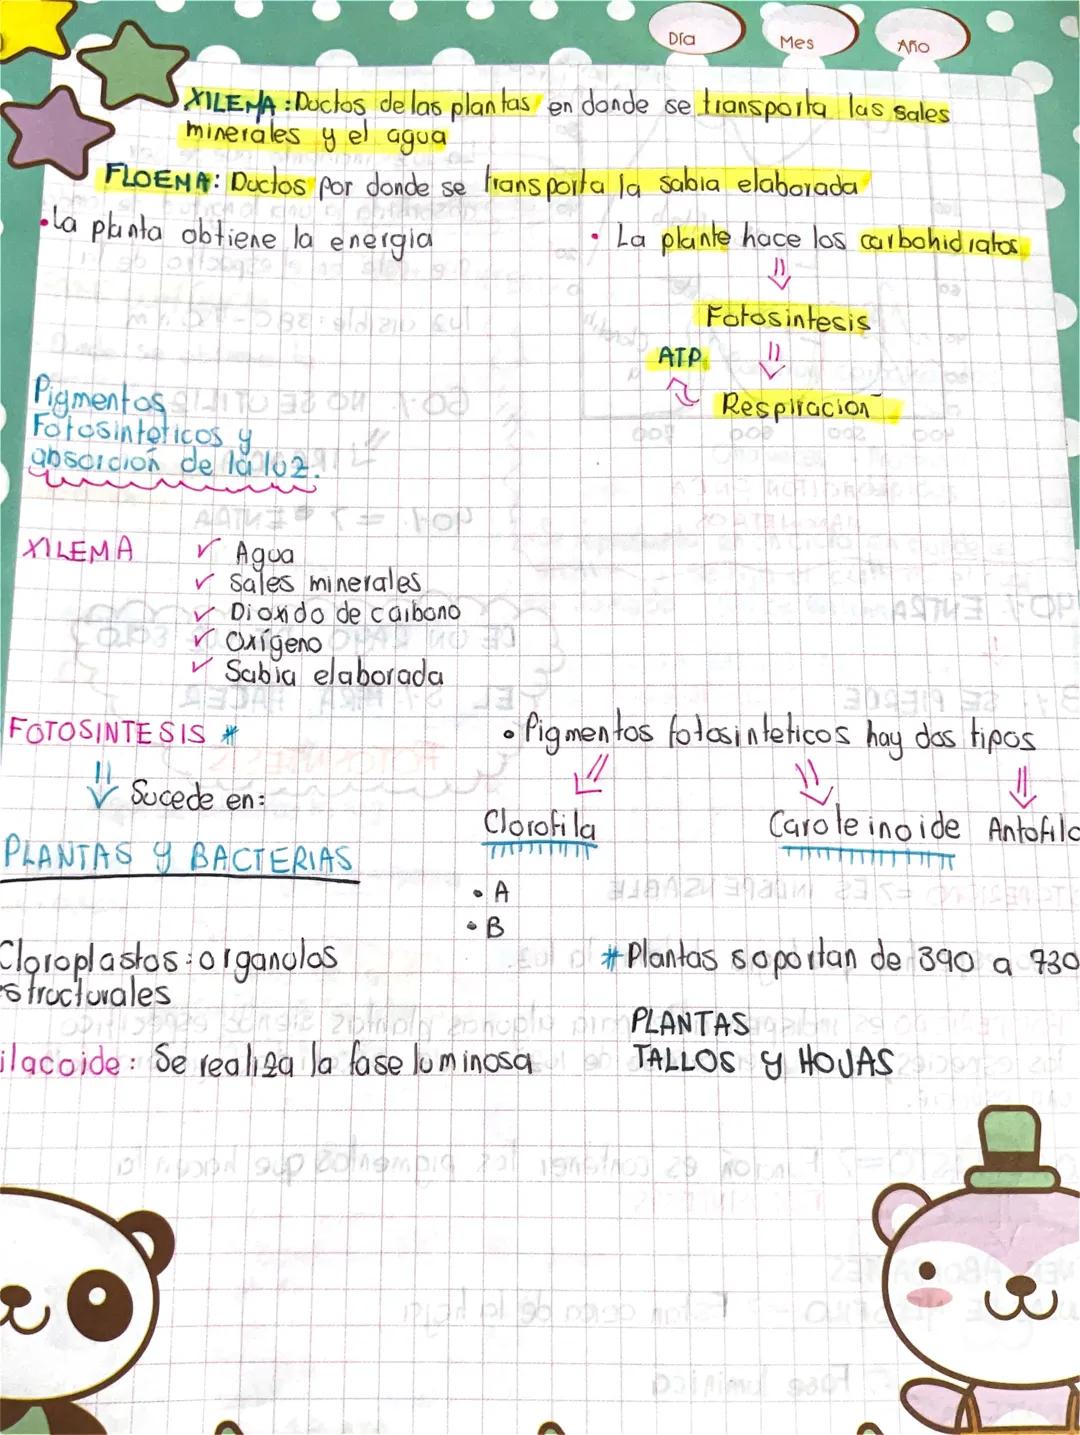 Día Mes Año
XILEMA: Ductos de las plantas en donde se transporta las sales
minerales y el agua
FLOEMA: Ductos por donde se transporta la sabia elaborada
• La planta obtiene la energia
• La plante hace los carbohidratos
Fotosintesis
ATP
Respiracion
Pigmentos
Fotosinteticos y
absorcion de la luz.
XILEMA
✓ Agua
✓ Sales minerales
✓ Dioxido de carbono
✓ Oxígeno
✓ Sabia elaborada
FOTOSINTESIS *
Sucede en:
PLANTAS y BACTERIAS
• Pigmentos fotosinteticos hay dos tipos
Clorofila
Caroteinoide
Antofila
• A
• B
Cloroplastos: organulos
estructurales
ilacoide: Se realiza la fase luminosa
* Plantas soportan de 390 a 730
PLANTAS
TALLOS y HOJAS